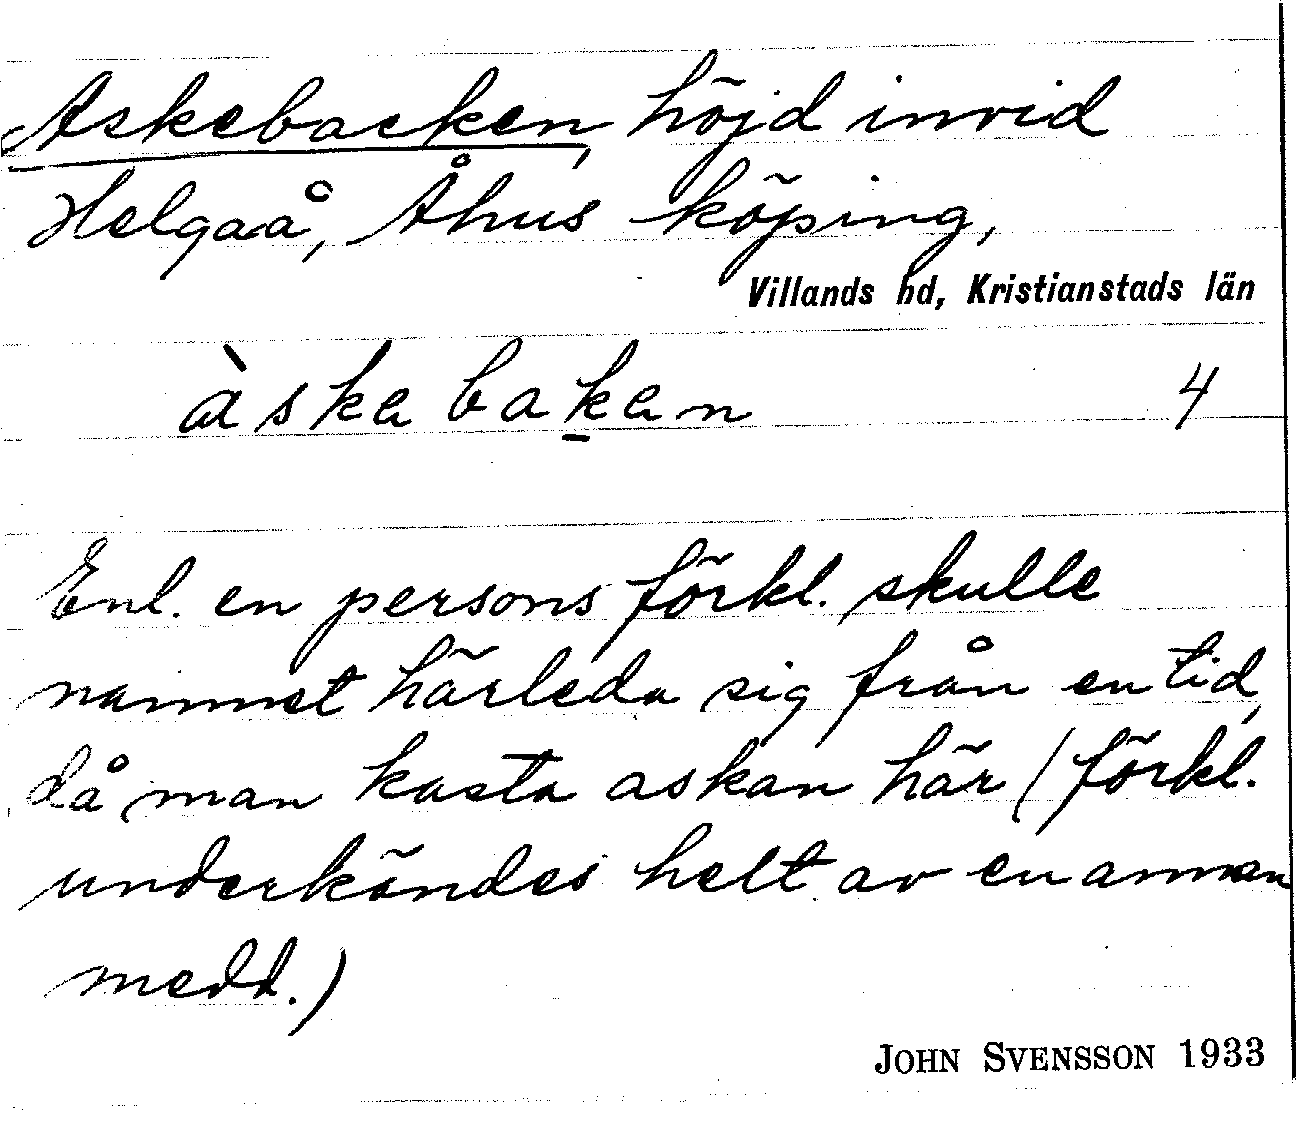 Askebacken, höjd invid
Helgaå, Åhus köping,
Villands hd, Kristianstads län
àskebak̠en 4
Enl. en persons förkl. skulle
namnet härleda sig från en tid,
då man kasta askan här (förkl.
underkändes helt av en annan
medd.)
JOHN SVENSSON 1933